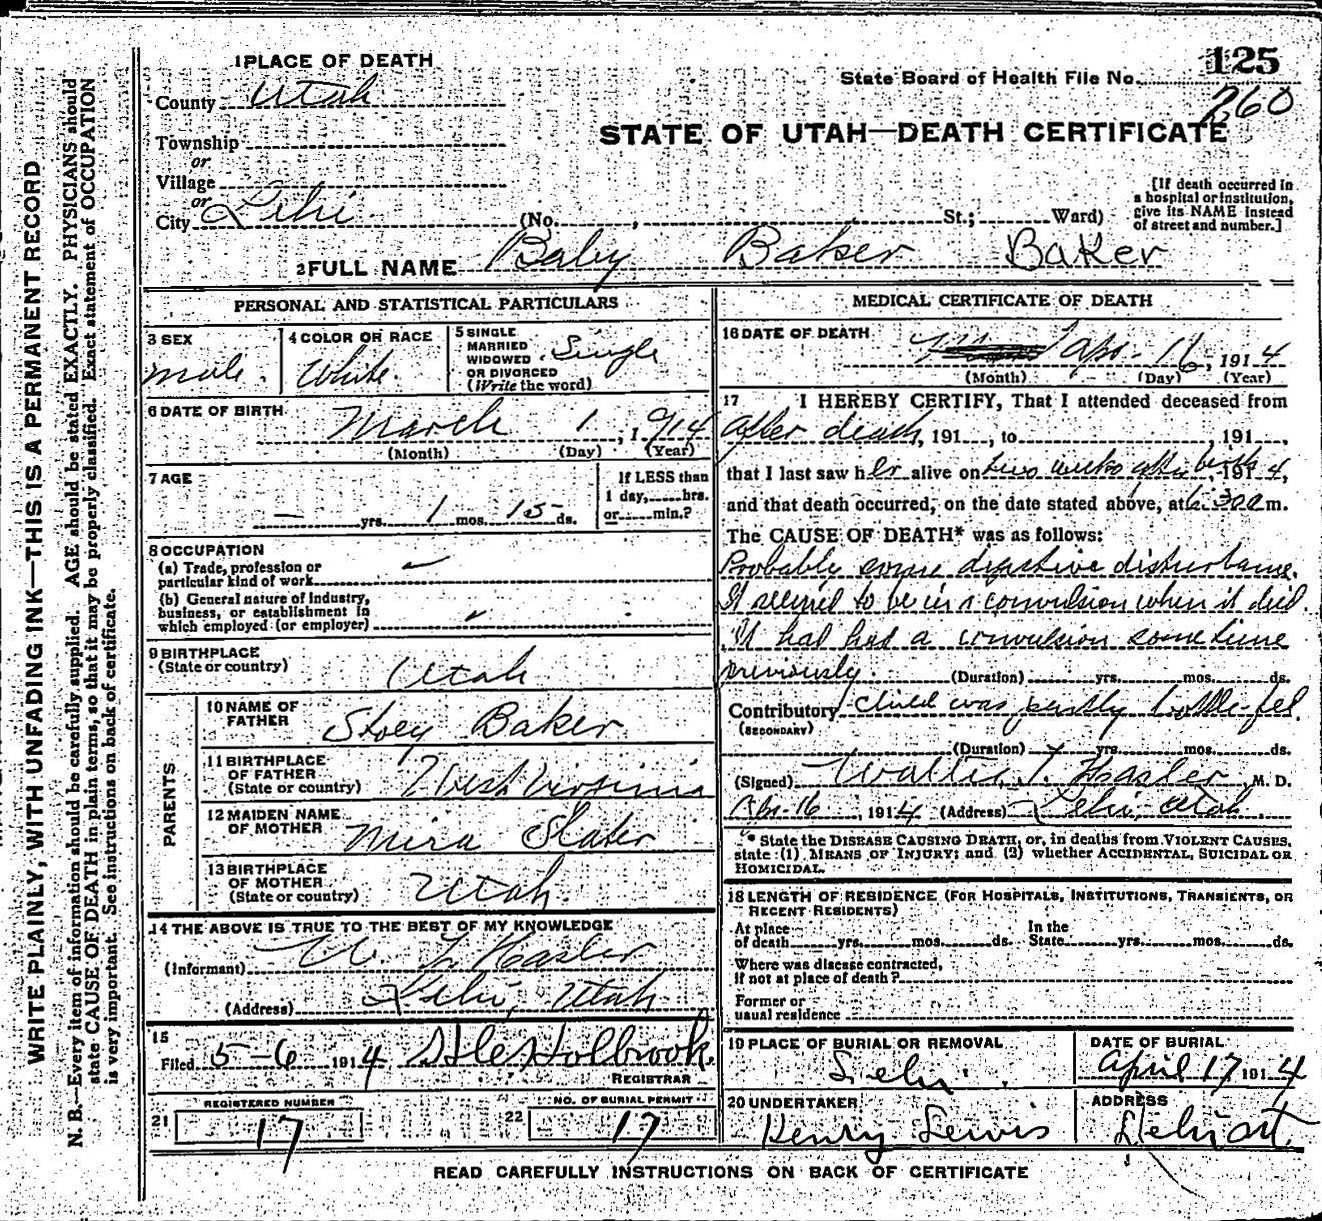 125
State Board of Health File No.
260
STATE OF UTAH—DEATH CERTIFICATE
1 PLACE OF DEATH
County Utah
Township
or
Village
or
City Lehi (No. , St.; Ward)
[If death occurred in
a hospital or institution,
give its NAME instead
of street and number.]
2 FULL NAME Baby Baker Baker
PERSONAL AND STATISTICAL PARTICULARS
3 SEX
male.
4 COLOR OR RACE
White.
5 SINGLE
MARRIED
WIDOWED
OR DIVORCED
(Write the word)
Single
6 DATE OF BIRTH
March 1, 1914
(Month) (Day) (Year)
7 AGE
— yrs. 1 mos. 15 ds.
If LESS than
1 day, hrs.
or min.?
8 OCCUPATION
(a) Trade, profession or
particular kind of work
(b) General nature of industry,
business, or establishment in
which employed (or employer)
9 BIRTHPLACE
(State or country)
Utah
PARENTS
10 NAME OF
FATHER
Stoey Baker
11 BIRTHPLACE
OF FATHER
(State or country)
West Virginia
12 MAIDEN NAME
OF MOTHER
Mira Slater
13 BIRTHPLACE
OF MOTHER
(State or country)
Utah.
14 THE ABOVE IS TRUE TO THE BEST OF MY KNOWLEDGE
(Informant) W. T. Hasler
(Address) Lehi, Utah
15
Filed 5-6 1914 Holbrook
REGISTRAR
REGISTERED NUMBER
21 17
NO. OF BURIAL PERMIT
22 17
MEDICAL CERTIFICATE OF DEATH
16 DATE OF DEATH
Apr. 16, 1914
(Month) (Day) (Year)
17 I HEREBY CERTIFY, That I attended deceased from
after death, 191 , to , 191 ,
that I last saw her alive on two weeks after birth, 1914,
and that death occurred, on the date stated above, at 6:30 a m.
The CAUSE OF DEATH* was as follows:
Probably some digestive disturbance.
It seemed to be in a convulsion when it died.
It had had a convulsion sometime
previously. (Duration) yrs. mos. ds.
Contributory Child was partly bottle-fed.
(SECONDARY)
(Duration) yrs. mos. ds.
(Signed) Walter T. Hasler, M. D.
Apr-16, 1914 (Address) Lehi, Utah.
* State the DISEASE CAUSING DEATH, or, in deaths from VIOLENT CAUSES,
state (1) MEANS OF INJURY; and (2) whether ACCIDENTAL, SUICIDAL OR
HOMICIDAL.
18 LENGTH OF RESIDENCE (FOR HOSPITALS, INSTITUTIONS, TRANSIENTS, OR
RECENT RESIDENTS)
At place
of death yrs. mos. ds.
In the
State yrs. mos. ds.
Where was disease contracted,
if not at place of death?
Former or
usual residence
19 PLACE OF BURIAL OR REMOVAL
Lehi.
DATE OF BURIAL
April 17 1914
20 UNDERTAKER
Henry Lewis
ADDRESS
Lehi ut.
READ CAREFULLY INSTRUCTIONS ON BACK OF CERTIFICATE
WRITE PLAINLY, WITH UNFADING INK—THIS IS A PERMANENT RECORD
N. B.—Every item of information should be carefully supplied. AGE should be stated EXACTLY. PHYSICIANS should
state CAUSE OF DEATH in plain terms, so that it may be properly classified. Exact statement of OCCUPATION
is very important. See instructions on back of certificate.